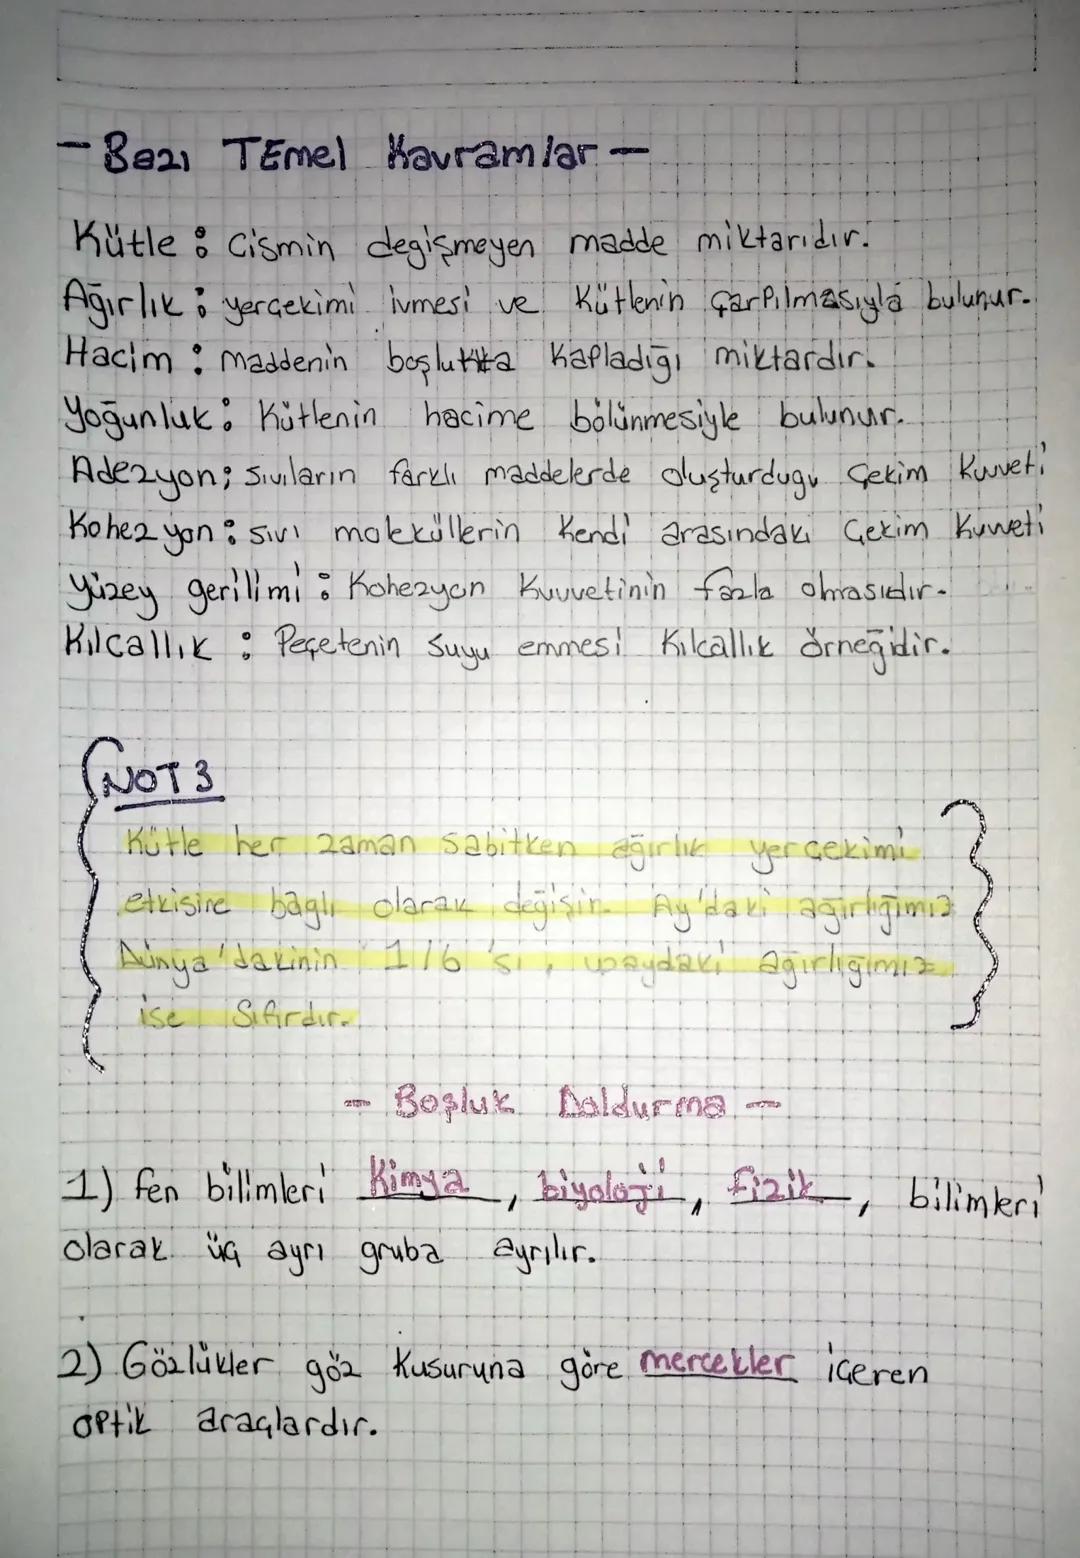 - Bazı TEmel Kavramlar -
Kütle : Cismin degişmeyen madde miktarıdır.
Ağırlık : yerçekimi ivmesi ve Kütlenin çarpılmasıyla bulunur.
Hacim : maddenin boşlukta Kapladığı miktardır.
Yoğunluk : Kütlenin hacime bölünmesiyle bulunur.
Adezyon ; sıvıların farklı maddelerde oluşturdugu Çekim Kuvveti
Kohezyon : sıvı moleküllerin Kendi arasındaki Çekim Kuvveti
Yüzey gerilimi : Kohezyon Kuvvetinin fazla olmasıdır.
Kılcallık : Peçetenin suyu emmesi Kılcallık örneğidir.
NOT 3
Kütle her zaman sabitken ağırlık yerçekimi
etkisine bağlı olarak değişir. Ay'daki ağırlığımız
Dünya'dakinin 1/6 'sı, uzaydaki ağırlığımız
ise Sıfırdır.
- Boşluk Doldurma -
1) fen bilimleri Kimya, biyoloji, fizik, bilimleri
olarak üç ayrı gruba ayrılır.
2) Gözlükler göz Kusuruna göre mercekler içeren
optik araçlardır.